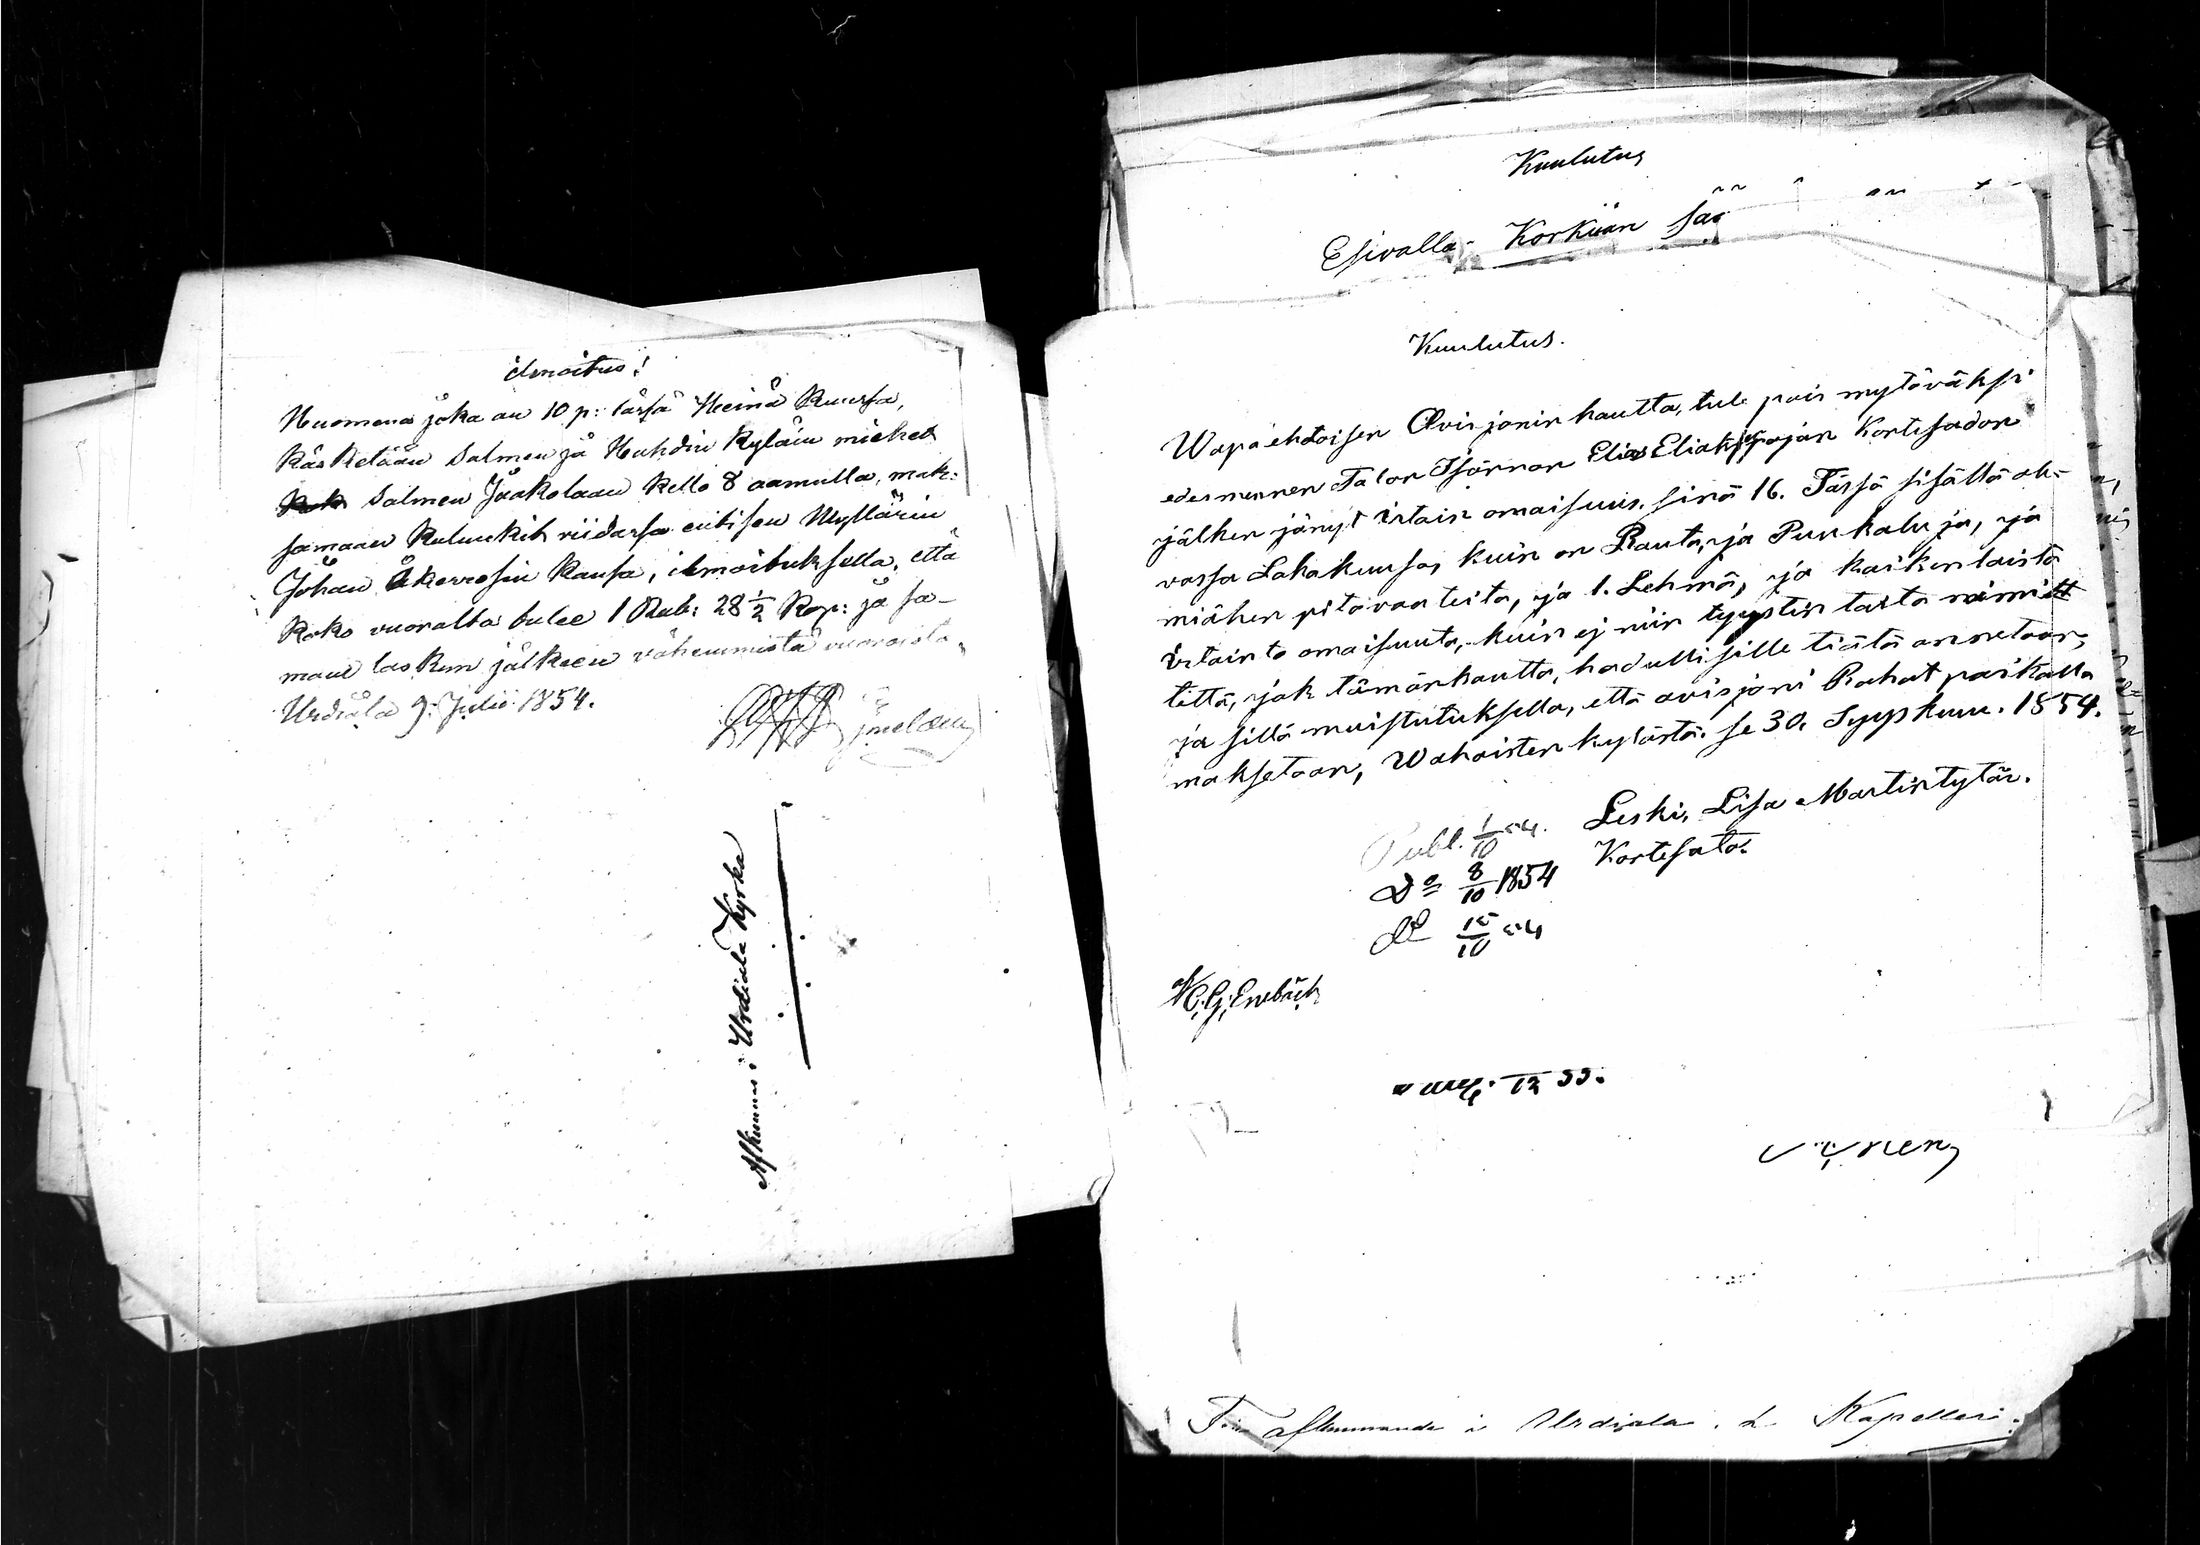 ilmoitus!
Huomena joka on 10 p: tässä Heinä Kuussa,
käsketään Salmen ja Huhdin kyläin miehet
Salmen Jaakolaan kello 8 aamulla, mak:
samaan kulunkit riidassa entisen Myllärin
Johan Åkerrosin kansa, ilmoituksella, että
koko vuoralta tulee 1 Rub: 28 1/2 Kop: ja sa-
man laskun jälkeen vähemmistä vuoroista.
Urdiala 9. Julii 1854.
Afkunnas i Urdiala Kyrka
Kuulutus
Esivalla Korkian
Kuulutus.
Wapaehtoisen Avisjonin kautta, tule pois mytäväksi
edesmennen Talon Isännän Elias Eliaksenpojan Kortesadon
jälken jänyt irtain omaisuus, sinä 16. Tässä sisällä ole-
vassa Lokakuusa, kuin on Rauta, ja Puukaluja, ja
miähen pitovaateita, ja 1. Lehmä, ja kaikenlaista
irtainta omaisuuta, kuin ej niin tyystin taita nimit
tettä, jok tämänkautta, halullisille tiätä annetaan,
ja sillä muistutuksella, että avisjoni Rahat paikalla
maksetaan, Wahoisten kylästä. se 30. Syyskuu. 1854.
Leski, Lisa Martintytär.
Kortesato.
Publ. 1/10 54.
Do 8/10 1854
Do 15/10 54
12 55.
afkunnande i Urdiala Kapelleri.